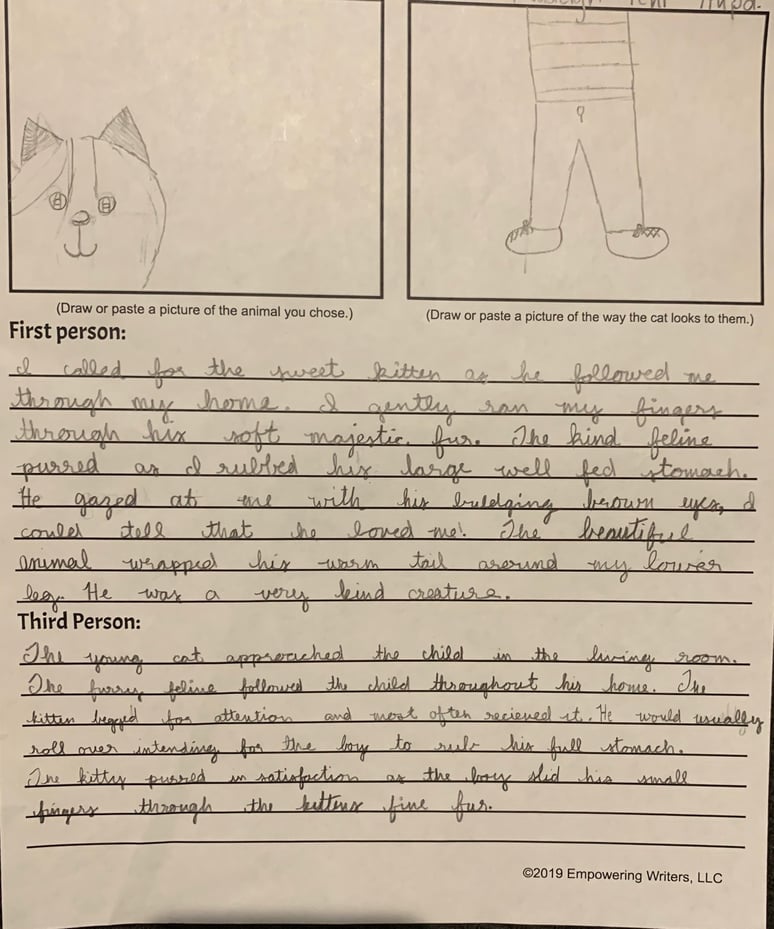 (Draw or paste a picture of the animal you chose.)
(Draw or paste a picture of the way the cat looks to them.)
First person:
I called for the sweet kitten as he followed me
through my home. I gently ran my fingers
through his soft majestic fur. The kind feline
purred as I rubbed his large well fed stomach.
He gazed at me with his buldging brown eyes, I
could tell that he loved me! The beautiful
animal wrapped his warm tail around my lower
leg. He was a very kind creature.
Third Person:
The young cat approached the child in the living room.
The furry feline followed the child throughout his home. The
kitten begged for attention and most often recieved it. He would usually
roll over intending for the boy to rub his full stomach.
The kitty purred in satisfaction as the boy slid his small
fingers through the kittens fine fur.
©2019 Empowering Writers, LLC